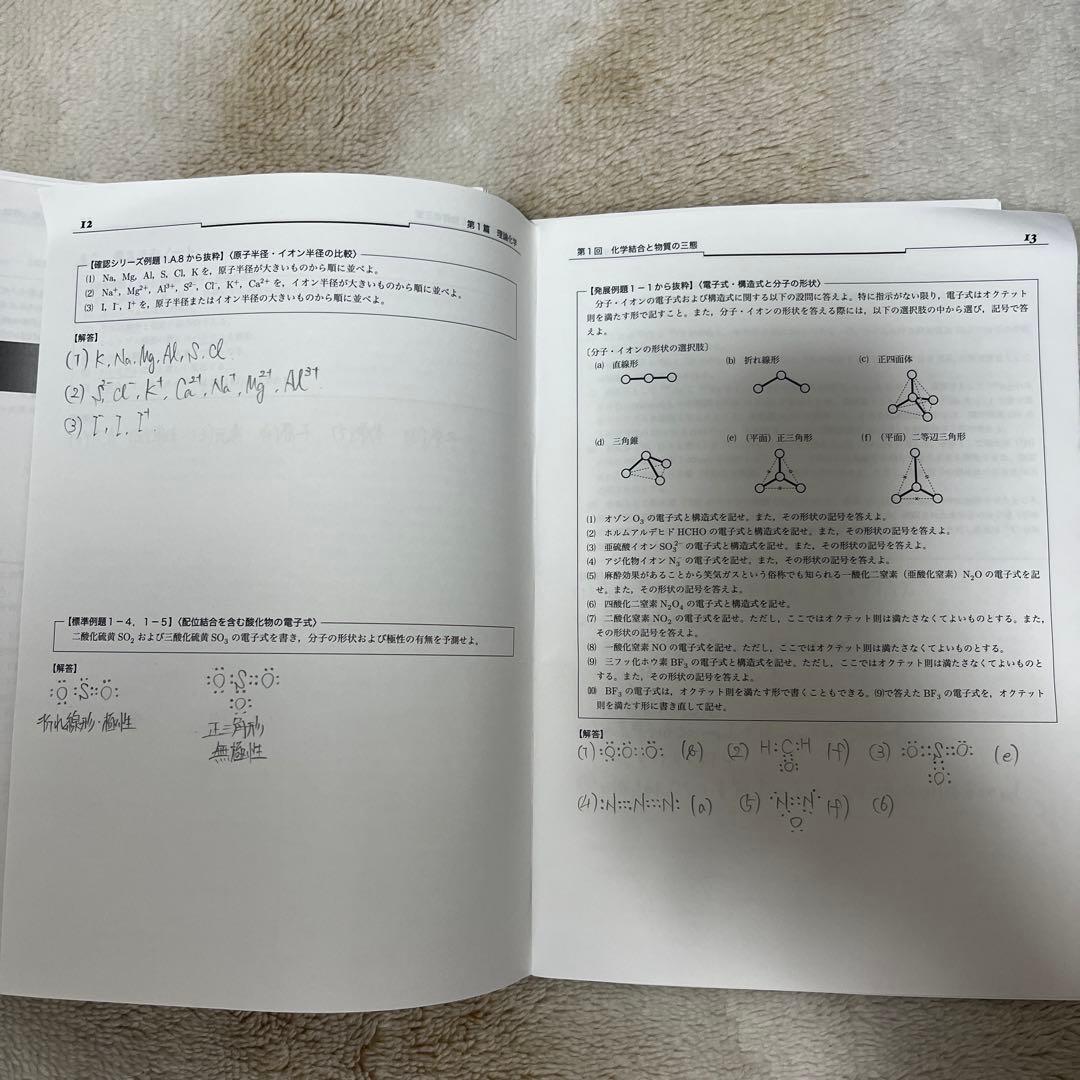 12
第1篇 理論化学
【確認シリーズ例題 1.A.8 から抜粋】〈原子半径・イオン半径の比較〉
(1) Na, Mg, Al, S, Cl, K を, 原子半径が大きいものから順に並べよ。
(2) Na⁺, Mg²⁺, Al³⁺, S²⁻, Cl⁻, K⁺, Ca²⁺ を, イオン半径が大きいものから順に並べよ。
(3) I, I⁻, I⁺ を, 原子半径またはイオン半径の大きいものから順に並べよ。
【解答】
(1) K, Na, Mg, Al, S, Cl
(2) S²⁻, Cl⁻, K⁺, Ca²⁺, Na⁺, Mg²⁺, Al³⁺
(3) I⁻, I, I⁺
【標準例題 1－4, 1－5】〈配位結合を含む酸化物の電子式〉
二酸化硫黄 SO₂ および三酸化硫黄 SO₃ の電子式を書き, 分子の形状および極性の有無を予測せよ。
【解答】
O S O
O S O
O
折れ線形・極性
正三角形
無極性
第1回 化学結合と物質の三態
13
【発展例題 1－1 から抜粋】〈電子式・構造式と分子の形状〉
分子・イオンの電子式および構造式に関する以下の設問に答えよ。特に指示がない限り, 電子式はオクテット
則を満たす形で記すこと。また, 分子・イオンの形状を答える際には, 以下の選択肢の中から選び, 記号で答
えよ。
〔分子・イオンの形状の選択肢〕
(a) 直線形 (b) 折れ線形 (c) 正四面体
(d) 三角錐 (e) （平面）正三角形 (f) （平面）二等辺三角形
(1) オゾン O₃ の電子式と構造式を記せ。また, その形状の記号を答えよ。
(2) ホルムアルデヒド HCHO の電子式と構造式を記せ。また, その形状の記号を答えよ。
(3) 亜硫酸イオン SO₃²⁻ の電子式と構造式を記せ。また, その形状の記号を答えよ。
(4) アジ化物イオン N₃⁻ の電子式と構造式を記せ。また, その形状の記号を答えよ。
(5) 麻酔効果があることから笑気ガスという俗称でも知られる一酸化二窒素（亜酸化窒素）N₂O の電子式を記
せ。また, その形状の記号を答えよ。
(6) 四酸化二窒素 N₂O₄ の電子式と構造式を記せ。
(7) 二酸化窒素 NO₂ の電子式を記せ。ただし, ここではオクテット則は満たさなくてよいものとする。また,
その形状の記号を答えよ。
(8) 一酸化窒素 NO の電子式を記せ。ただし, ここではオクテット則は満たさなくてよいものとする。
(9) 三フッ化ホウ素 BF₃ の電子式と構造式を記せ。ただし, ここではオクテット則は満たさなくてよいものと
する。また, その形状の記号を答えよ。
(10) BF₃ の電子式は, オクテット則を満たす形で書くこともできる。(9)で答えた BF₃ の電子式を, オクテット
則を満たす形に書き直して記せ。
【解答】
(1) :O:O::O: (b) (2) H:C:H (f) (3) :O:S:O: (e)
O O
(4) :N:::N:::N: (a) (5) N::N (f) (6)
O